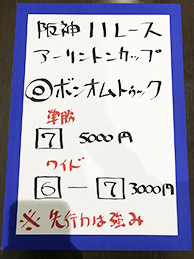 阪神11レース
アーリントンカップ
◎ボンオムトゥック
単勝
7 5000円
ワイド
6 - 7 3000円
※先行力は強み